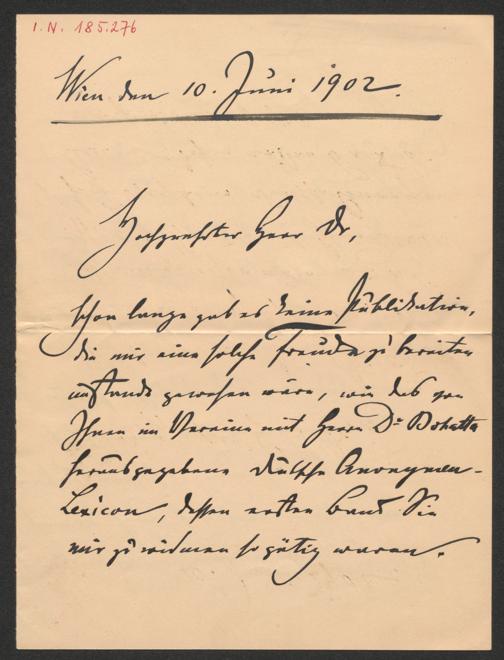 I. N. 185.276
Wien den 10. Juni 1902.
Hochgeehrter Herr Dr,
schon lange gab es keine Publikation,
die mir eine solche Freude zu bereiten
imstande gewesen wäre, wie das von
Ihnen im Vereine mit Herrn Dr Bohatta
herausgegebene deutsche Anonymen-
Lexicon, dessen ersten Band Sie
mir zu widmen so gütig waren.